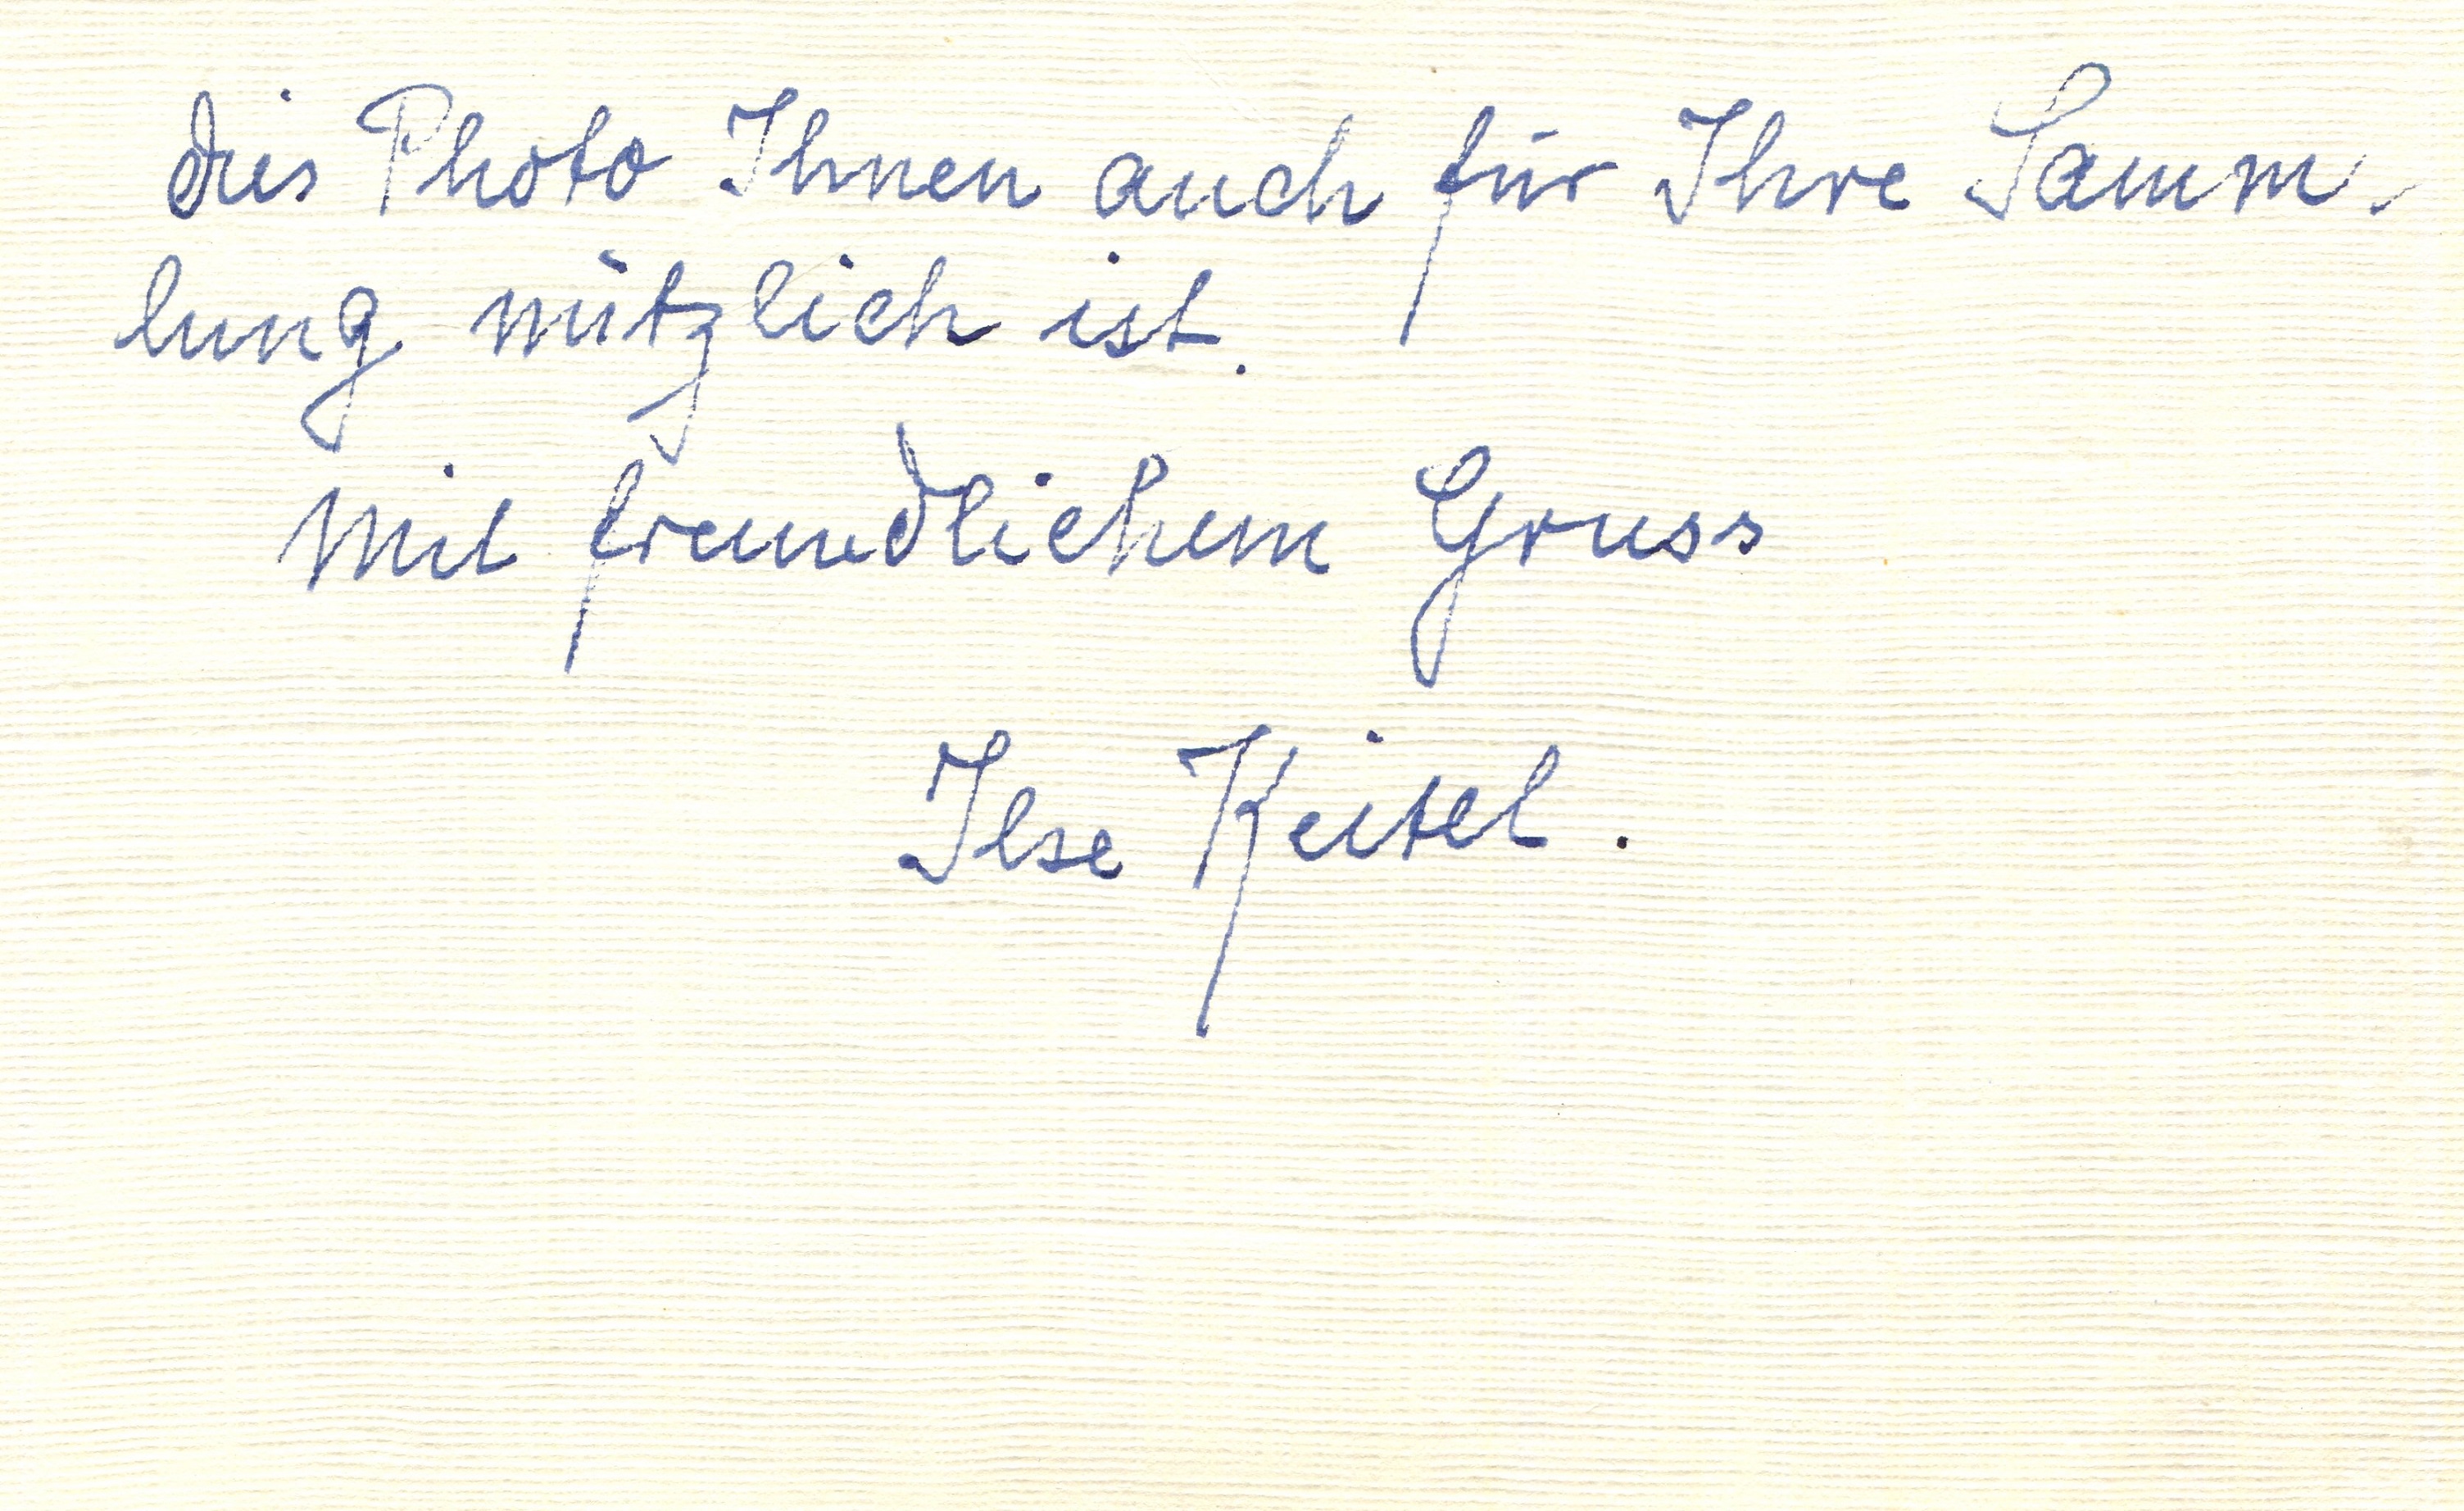 dies Photo Ihnen auch für Ihre Samm-
lung nützlich ist.
Mit freundlichem Gruss
Ilse Keitel.